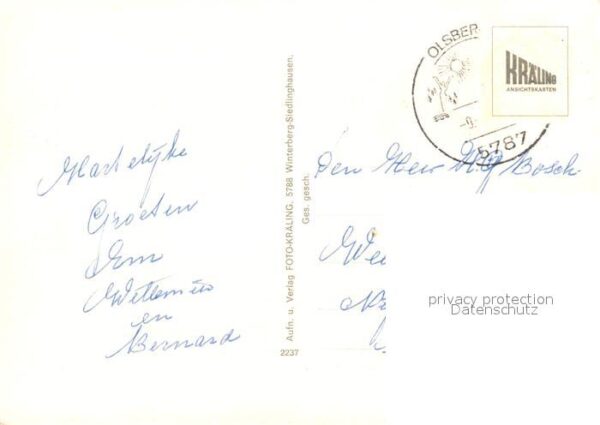 Hartelijke
Groeten
Om
Willemus
en
Bernard
Aufn. u. Verlag FOTO-KRÄLING, 5788 Winterberg-Siedlinghausen.
Ges. gesch.
2237
OLSBER
5787
KRÄLING
ANSICHTSKARTEN
Den Heer Bosch
privacy protection
Datenschutz